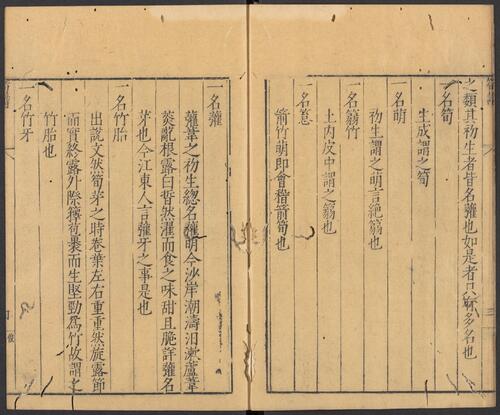 之類其初生者皆名虇也如是者只一外多名也
一名筍
生成謂之筍
一名萌
初生謂之萌言絶萌也
一名篛竹
土内皮中謂之篛也
一名䈚
箭竹萌即會稽箭筍也
一名虇
虇葦之初生總名虇萌今沙岸潮濤汨漱蘆葦
葵亂根露白皙然濯而食之味甜且脆詳虇名
芽也今江東人言虇牙之事是也
一名竹胎
出說文然筍芽之時卷葉左右重重然旋露節
而實終露外際籜苞裹而生堅勁爲竹故謂之
竹胎也
一名竹牙